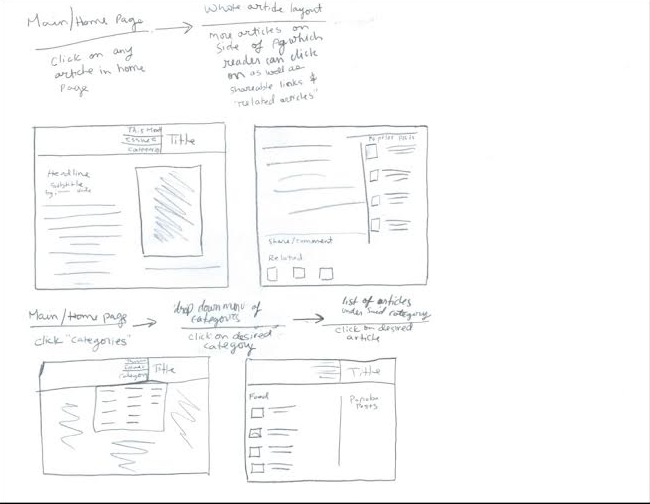 Main/Home Page
Click on any
article in home
Page
Whole article layout
more articles on
side of pg which
reader can click
on as well as
shareable links &
"related articles"
This Month
Issues
Categories
Title
Headline
Subtitle
by:
Popular posts
Share/comment
Related
Main/Home page
click "categories"
drop down menu of
categories
click on desired
category
list of articles
under said category
click on desired
article
Title
Title
Food
Popular
Posts